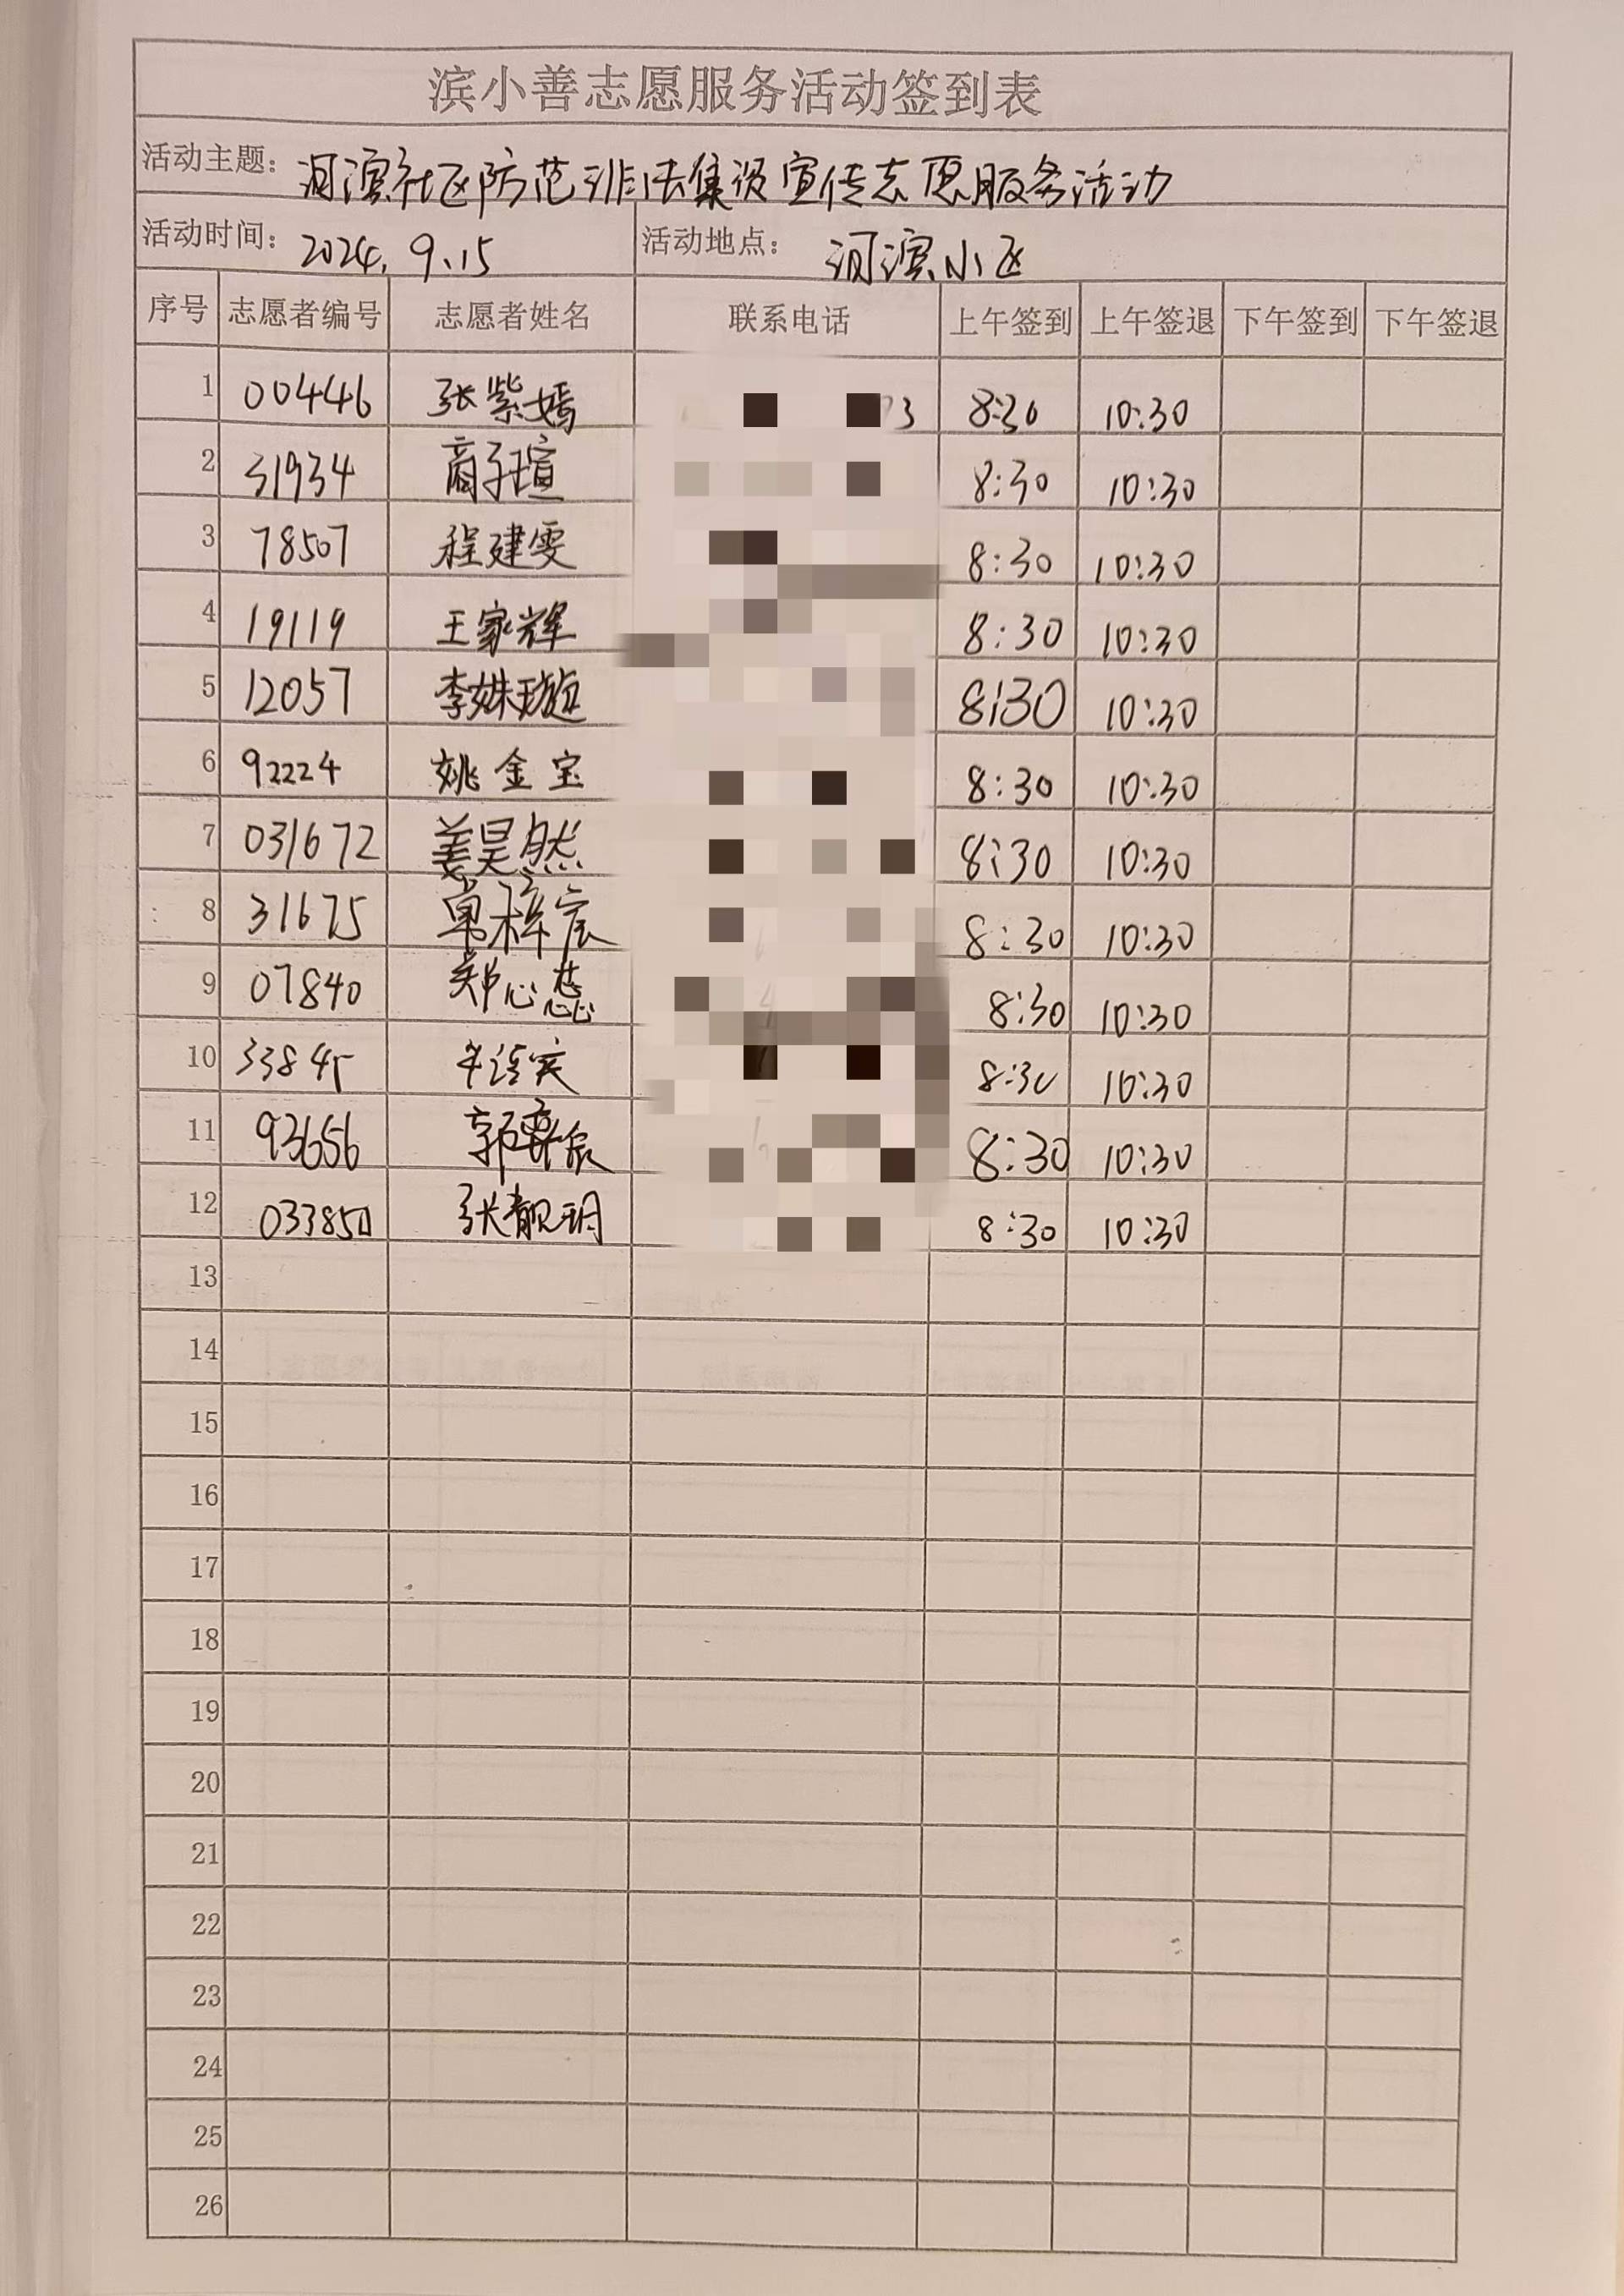 滨小善志愿服务活动签到表
活动主题： 河滨社区防范非法集资宣传志愿服务活动
活动时间： 2024.9.15 活动地点： 河滨小区
序号 志愿者编号 志愿者姓名 联系电话 上午签到 上午签退 下午签到 下午签退
1 00446 张紫嫣 3 8:30 10:30
2 31934 商子瑄 8:30 10:30
3 78507 程建雯 8:30 10:30
4 19119 王家辉 8:30 10:30
5 12057 李姝璇 8:30 10:30
6 92224 姚金宝 8:30 10:30
7 031672 姜昊然 8:30 10:30
8 31675 单梓宸 8:30 10:30
9 07840 郑心蕊 8:30 10:30
10 33845 8:30 10:30
11 93656 郭 8:30 10:30
12 033850 张靓玥 8:30 10:30
13
14
15
16
17
18
19
20
21
22
23
24
25
26